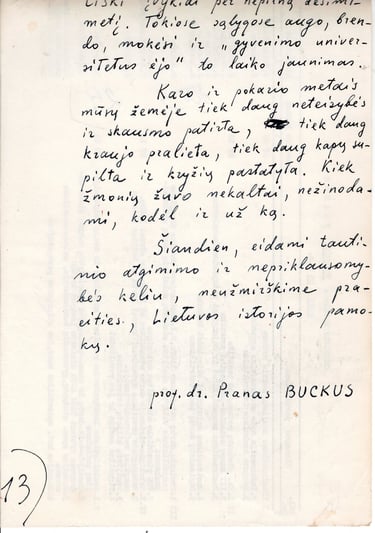 tiški įvykiai per nepilną dešimt-
metį. Tokiose sąlygose augo, bren-
do, mokėsi ir „gyvenimo univer-
sitetus ėjo" to laiko jaunimas.
Karo ir pokario metais
mūsų žemėje tiek daug neteisybės
ir skausmo patirta, tiek daug
kraujo pralieta, tiek daug kapų su-
pilta ir kryžių pastatyta. Kiek
žmonių žuvo nekaltai, nežinoda-
mi, kodėl ir už ką.
Šiandien, eidami tauti-
nio atgimimo ir nepriklausomy-
bės keliu, neužmirškime pra-
eities, Lietuvos istorijos pamo-
kų.
prof. dr. Pranas BUCKUS
13)